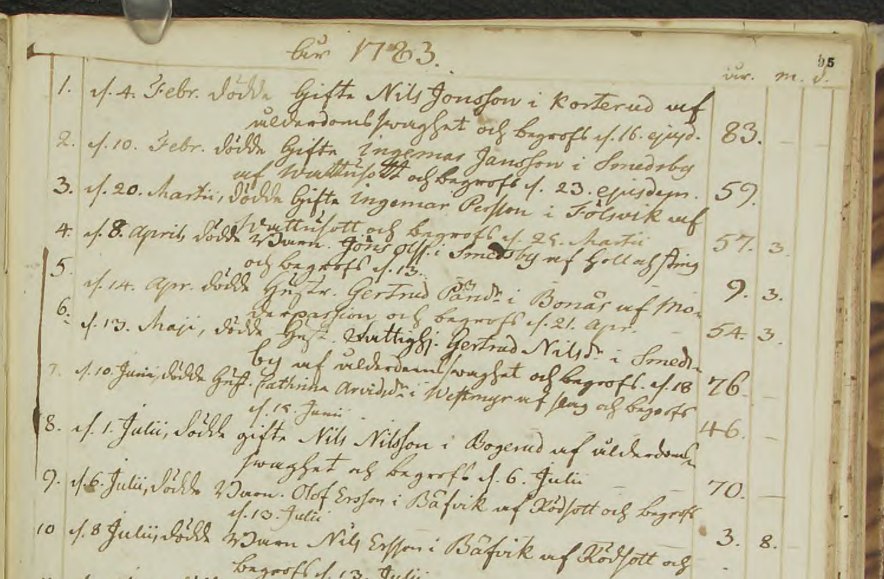 åhr 1783.
95
år. m. d.
1. d. 4. Febr. dödde Gifte Nils Jonsson i Korterud af
ålderdoms swaghet och begrofs d. 16. ejusd. 83. – –
2. d. 10. Febr. dödde Gifte Ingemar Jansson i Smedsby
af Wattusott och begrofs d. 23. ejusdem. 59. –
3. d. 20. Martii, dödde Gifte Ingemar Persson i Fölsvik af
Wattusott och begrofs d. 25. Martii 57. 3.
4. d. 8. April, dödde Barn. Jöns Olss. i Smedsby af Håll och sting
och begrofs d. 13. 9. 3.
5. d. 14. Apr. dödde Hustr. Gertrud Pände. i Bonäs af Mo-
derpassion och begrofs d. 21. Apr. 54. 3.
6. d. 13. Maji, dödde Hust. Gertrud Nilsdr. i Smeds-
by af ålderdoms swaghet och begrofs. d. 18 76. –
7. d. 10. Junii, dödde Hust. Cathrina Arvidsdr. i Westmyr af slag och begrofs
d. 15. Junii 46. –
8. d. 1. Julii, dödde gifte Nils Nilsson i Bogerud af ålderdoms-
swaghet och begrofs d. 6. Julii 70. –
9. d. 6. Julii, dödde Barn. Olof Ersson i Bäfvik af Rödsott och begrofs
d. 13. Julii 3. 8. –
10 d. 8 Julii, dödde Barn Nils Ersson i Bäfvik af Rödsott och
begrofs d. 13. Julii